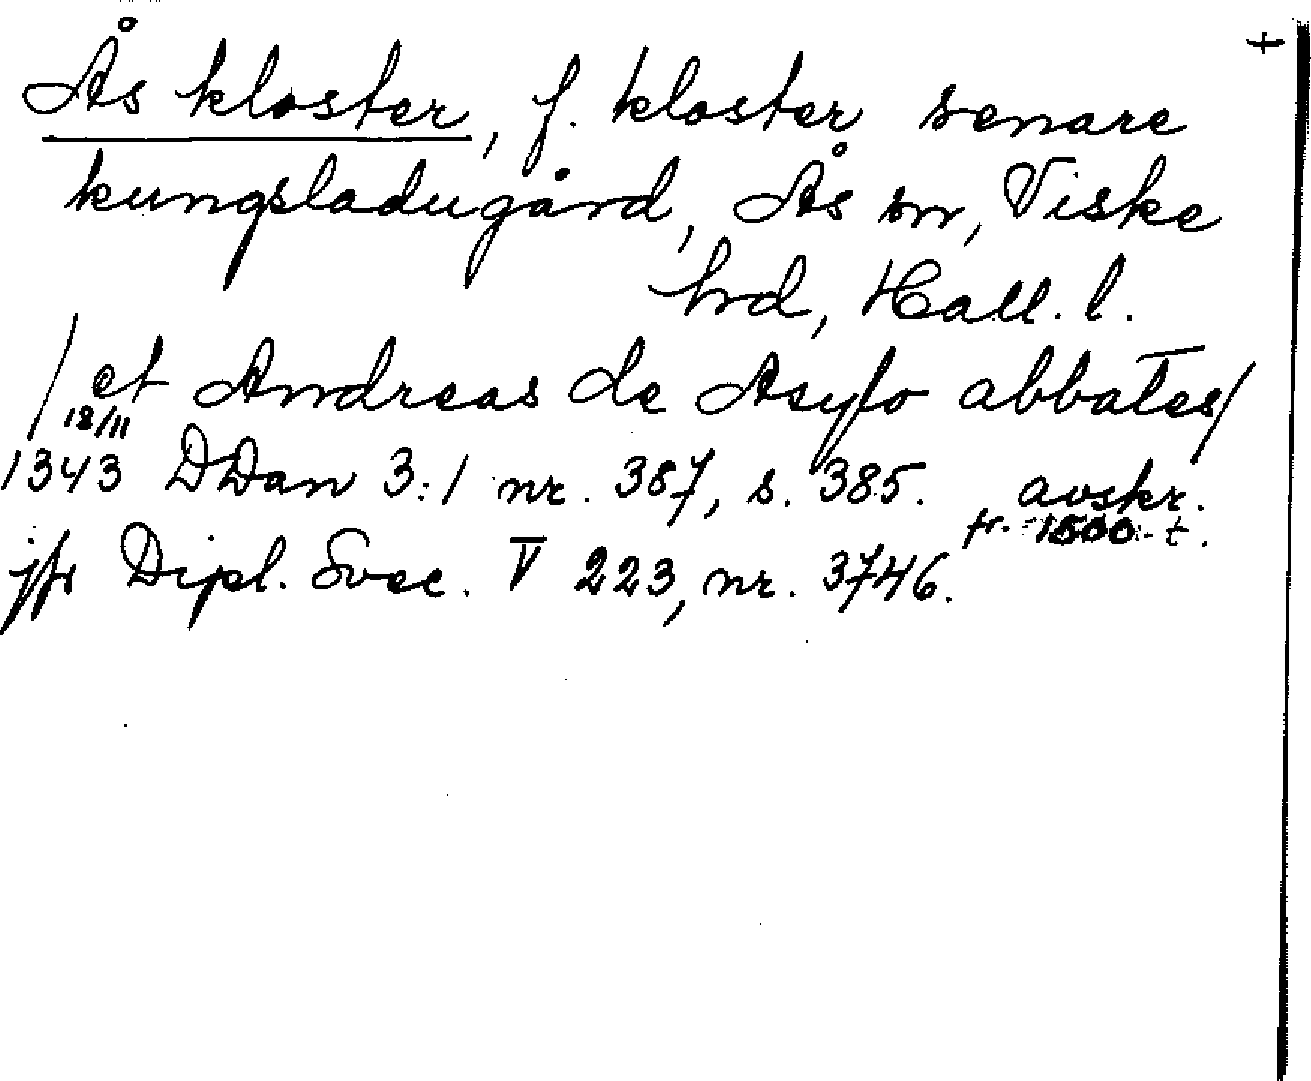 +
Ås kloster, f. kloster senare
kungsladugård, Ås sn, Viske
hrd, Hall. l.
/ et Andreas de Asylo abbates /
18/11
1343 DDan 3:1 nr. 387, s. 385. avskr.
fr. 1500-t.
jfr Dipl. Svec. V 223, nr. 3746.